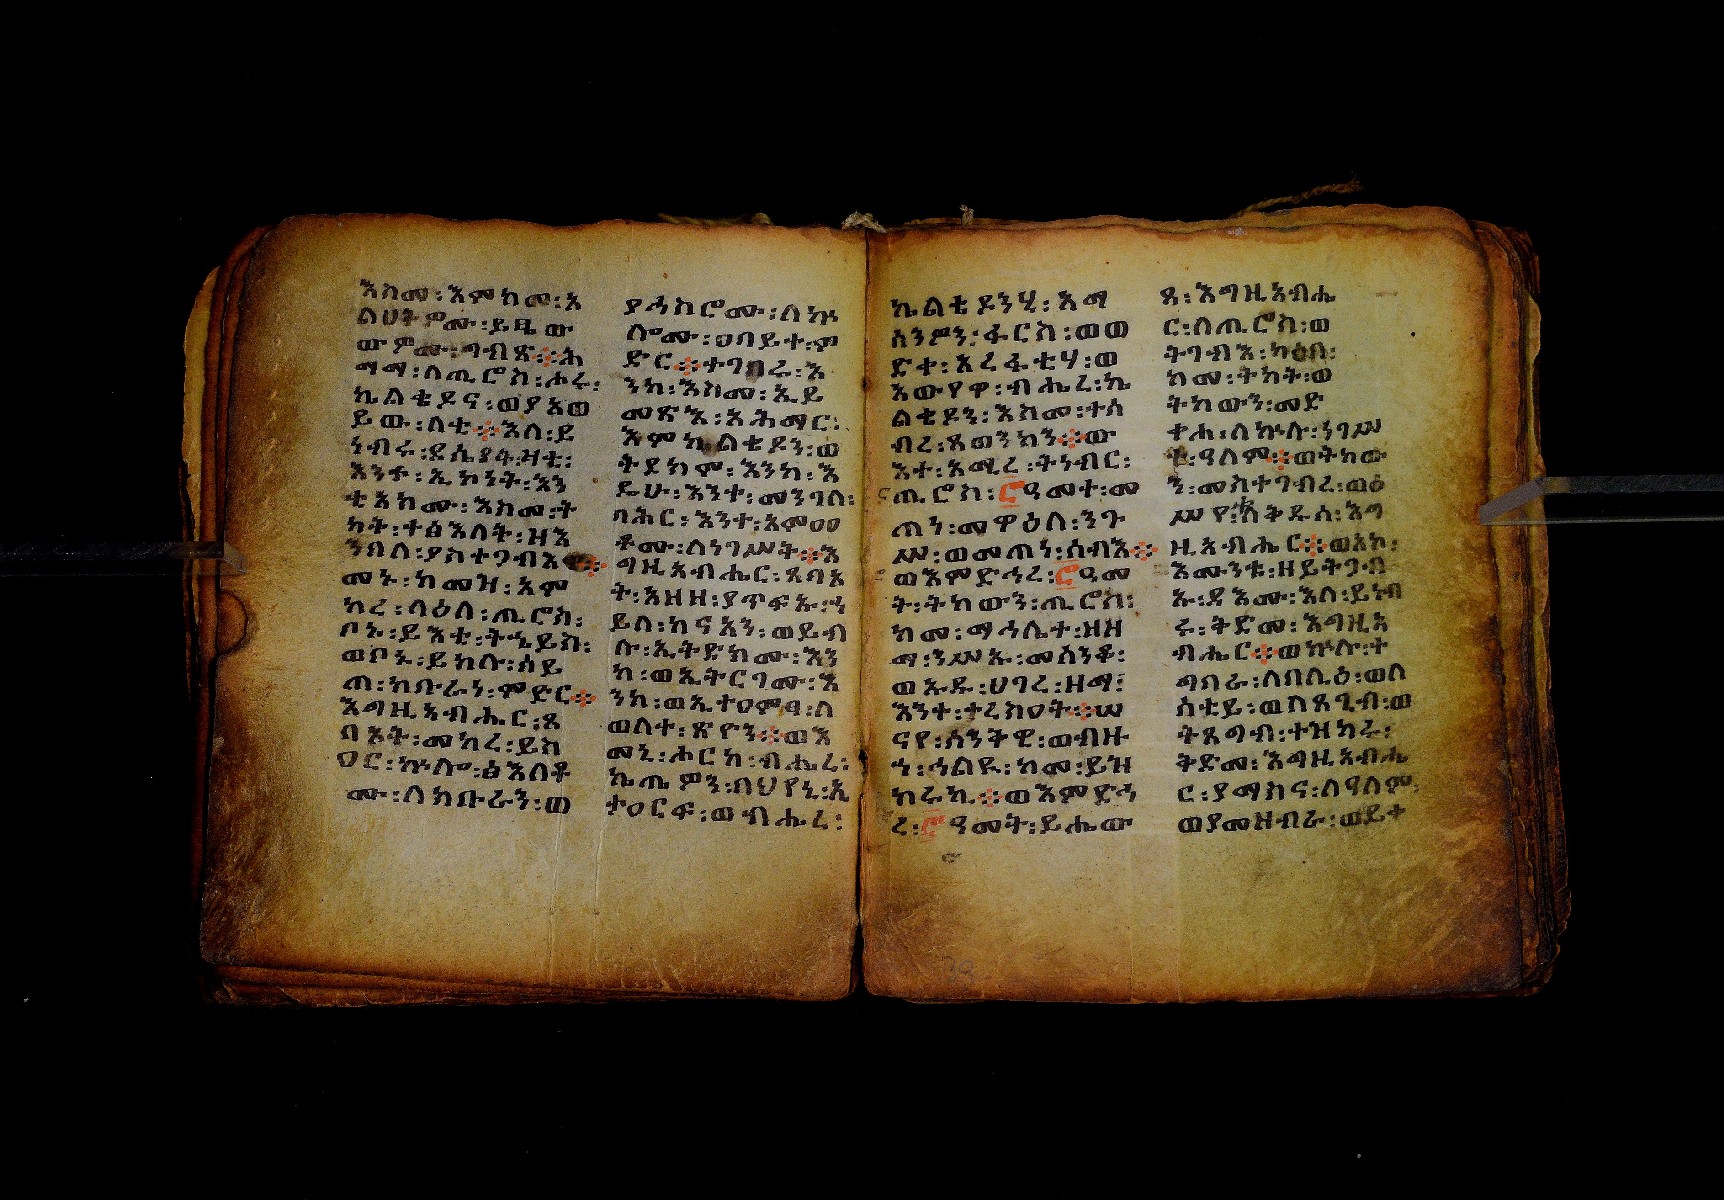 እስመ፡እምከመ፡አ
ልህትሞሙ፡ይፄው
ውምሙ፡ግብጽ፨ሕ
ማማ፡ለጢሮስ፡ሖሩ፡
ኬልቄዶና፡ወያአወ
ይው፡ለቲ፨እለ፡ይ
ነብሩ፡ደሴያት፡ዛቲ፡
እንተ፡ኢኮነት፡እን
ቲአክሙ፡እስመ፡ት
ካት፡ተፅእለት፡ዝእ
ንበለ፡ያስተጋብእ፨
መኑ፡ከመዝ፡አም
ከረ፡ላዕለ፡ጢሮስ፡
ቦኑ፡ይእቲ፡ትኔይስ፡
ወቦኑ፡ይክሉ፡ሰይ
ጠ፡ከቡራነ፡ምድር፨
እግዚአብሔር፡ጸ
ባኦት፡መከረ፡ይስ
ዐር፡ኵሎ፡ፅእለቶ
ሙ፡ለክቡራን፡ወ
ያሓስሮሙ፡ለኵ
ሎሙ፡ዐባይተ፡ም
ድር፨ተገበሪ፡እ
ንከ፡እስመ፡ኢይ
መጽእ፡አሕማር፡
እምኬልቄዶን፡ወ
ትደክም፡እንከ፡እ
ዴሁ፡እንተ፡መንገለ፡
ባሕር፡እንተ፡አምዐዐ
ቶሙ፡ለነገሥት፨እ
ግዚአብሔር፡ጸባኦ
ት፡አዘዘ፡ያጥፍኡ፡ኀ
ይለ፡ከናአን፡ወይብ
ሉ፡ኢትድክሙ፡እን
ከ፡ወኢትርገሙ፡እ
ንከ፡ወኢተዐምፁ፡ለ
ወለተ፡ጽዮን፨ወእ
መኒ፡ሖርከ፡ብሔረ፡
ኬጤምን፡በህየኒ፡ኢ
ተዐርፍ፡ወብሔረ፡
ኬልቄዶንሂ፡አማ
ሰንዎን፡ፋርስ፡ወወ
ድተ፡አረፋቲሃ፡ወ
አውየዋ፡ብሔረ፡ኬ
ልቄዶን፡እስመ፡ተሰ
ብረ፡ጸወንክን፨ው
እተ፡አሚረ፡ትነብር፡
ጢሮስ፡፸ዓመተ፡መ
ጠነ፡መዋዕለ፡ንጉ
ሥ፡ወመጠነ፡ሰብእ፨
ወእምድኅረ፡፸ዓመ
ት፡ትከውን፡ጢሮስ፡
ከመ፡ማኅሌተ፡ዘዘ
ማ፡ንሥኡ፡መሰንቆ፡
ወኡዱ፡ሀገረ፡ዘማ፡
እንተ፡ተረስዐት፨ሠ
ናየ፡ሰንቅዊ፡ወብዙ
ኀ፡ኀልዪ፡ከመ፡ይዝ
ከሩኪ፨ወእምድኅ
ረ፡፸ዓመት፡ይሔው
ጻ፡እግዚአብሔ
ር፡ለጢሮስ፡ወ
ትገብእ፡ካዕበ፡
ከመ፡ትካት፡ወ
ትከውን፡መድ
ተሐ፡ለኵሉ፡ነገሥ
ተ፡ዓለም፨ወትከው
ን፡መስተገብረ፡ወዕ
ሥየ፡ቅዱሰ፡እግ
ዚአብሔር፨ወአኮ፡
እሙንቱ፡ዘይትጋብ
ኡ፡ዳእሙ፡እለ፡ይነብ
ሩ፡ቅድመ፡እግዚአ
ብሔር፨ወኵሉ፡ተ
ግበራ፡ለበሊዕ፡ወለ
ሰቲይ፡ወለጸጊብ፡ወ
ትጸግብ፡ተዝካሩ፡
ቅድመ፡እግዚአብሔ
ር፡ያማስና፡ለዓለም፡
ወያመዘብራ፡ወይቀ